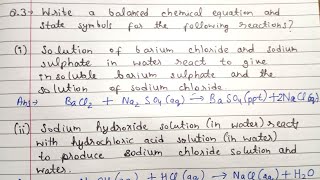 Q.3→ Write a balanced chemical equation and
state symbols for the following reactions?
(i) Solution of barium chloride and sodium
sulphate in water react to give
insoluble barium sulphate and the
solution of sodium chloride
Ans:→ BaCl2 + Na2SO4(aq) → BaSO4(ppt) + 2NaCl(aq)
(ii) Sodium hydroxide solution (in water) reacts
with hydrochloric acid solution (in water)
to produce sodium chloride solution and
water.
(aq) + HCl(aq) → NaCl(aq) + H2O